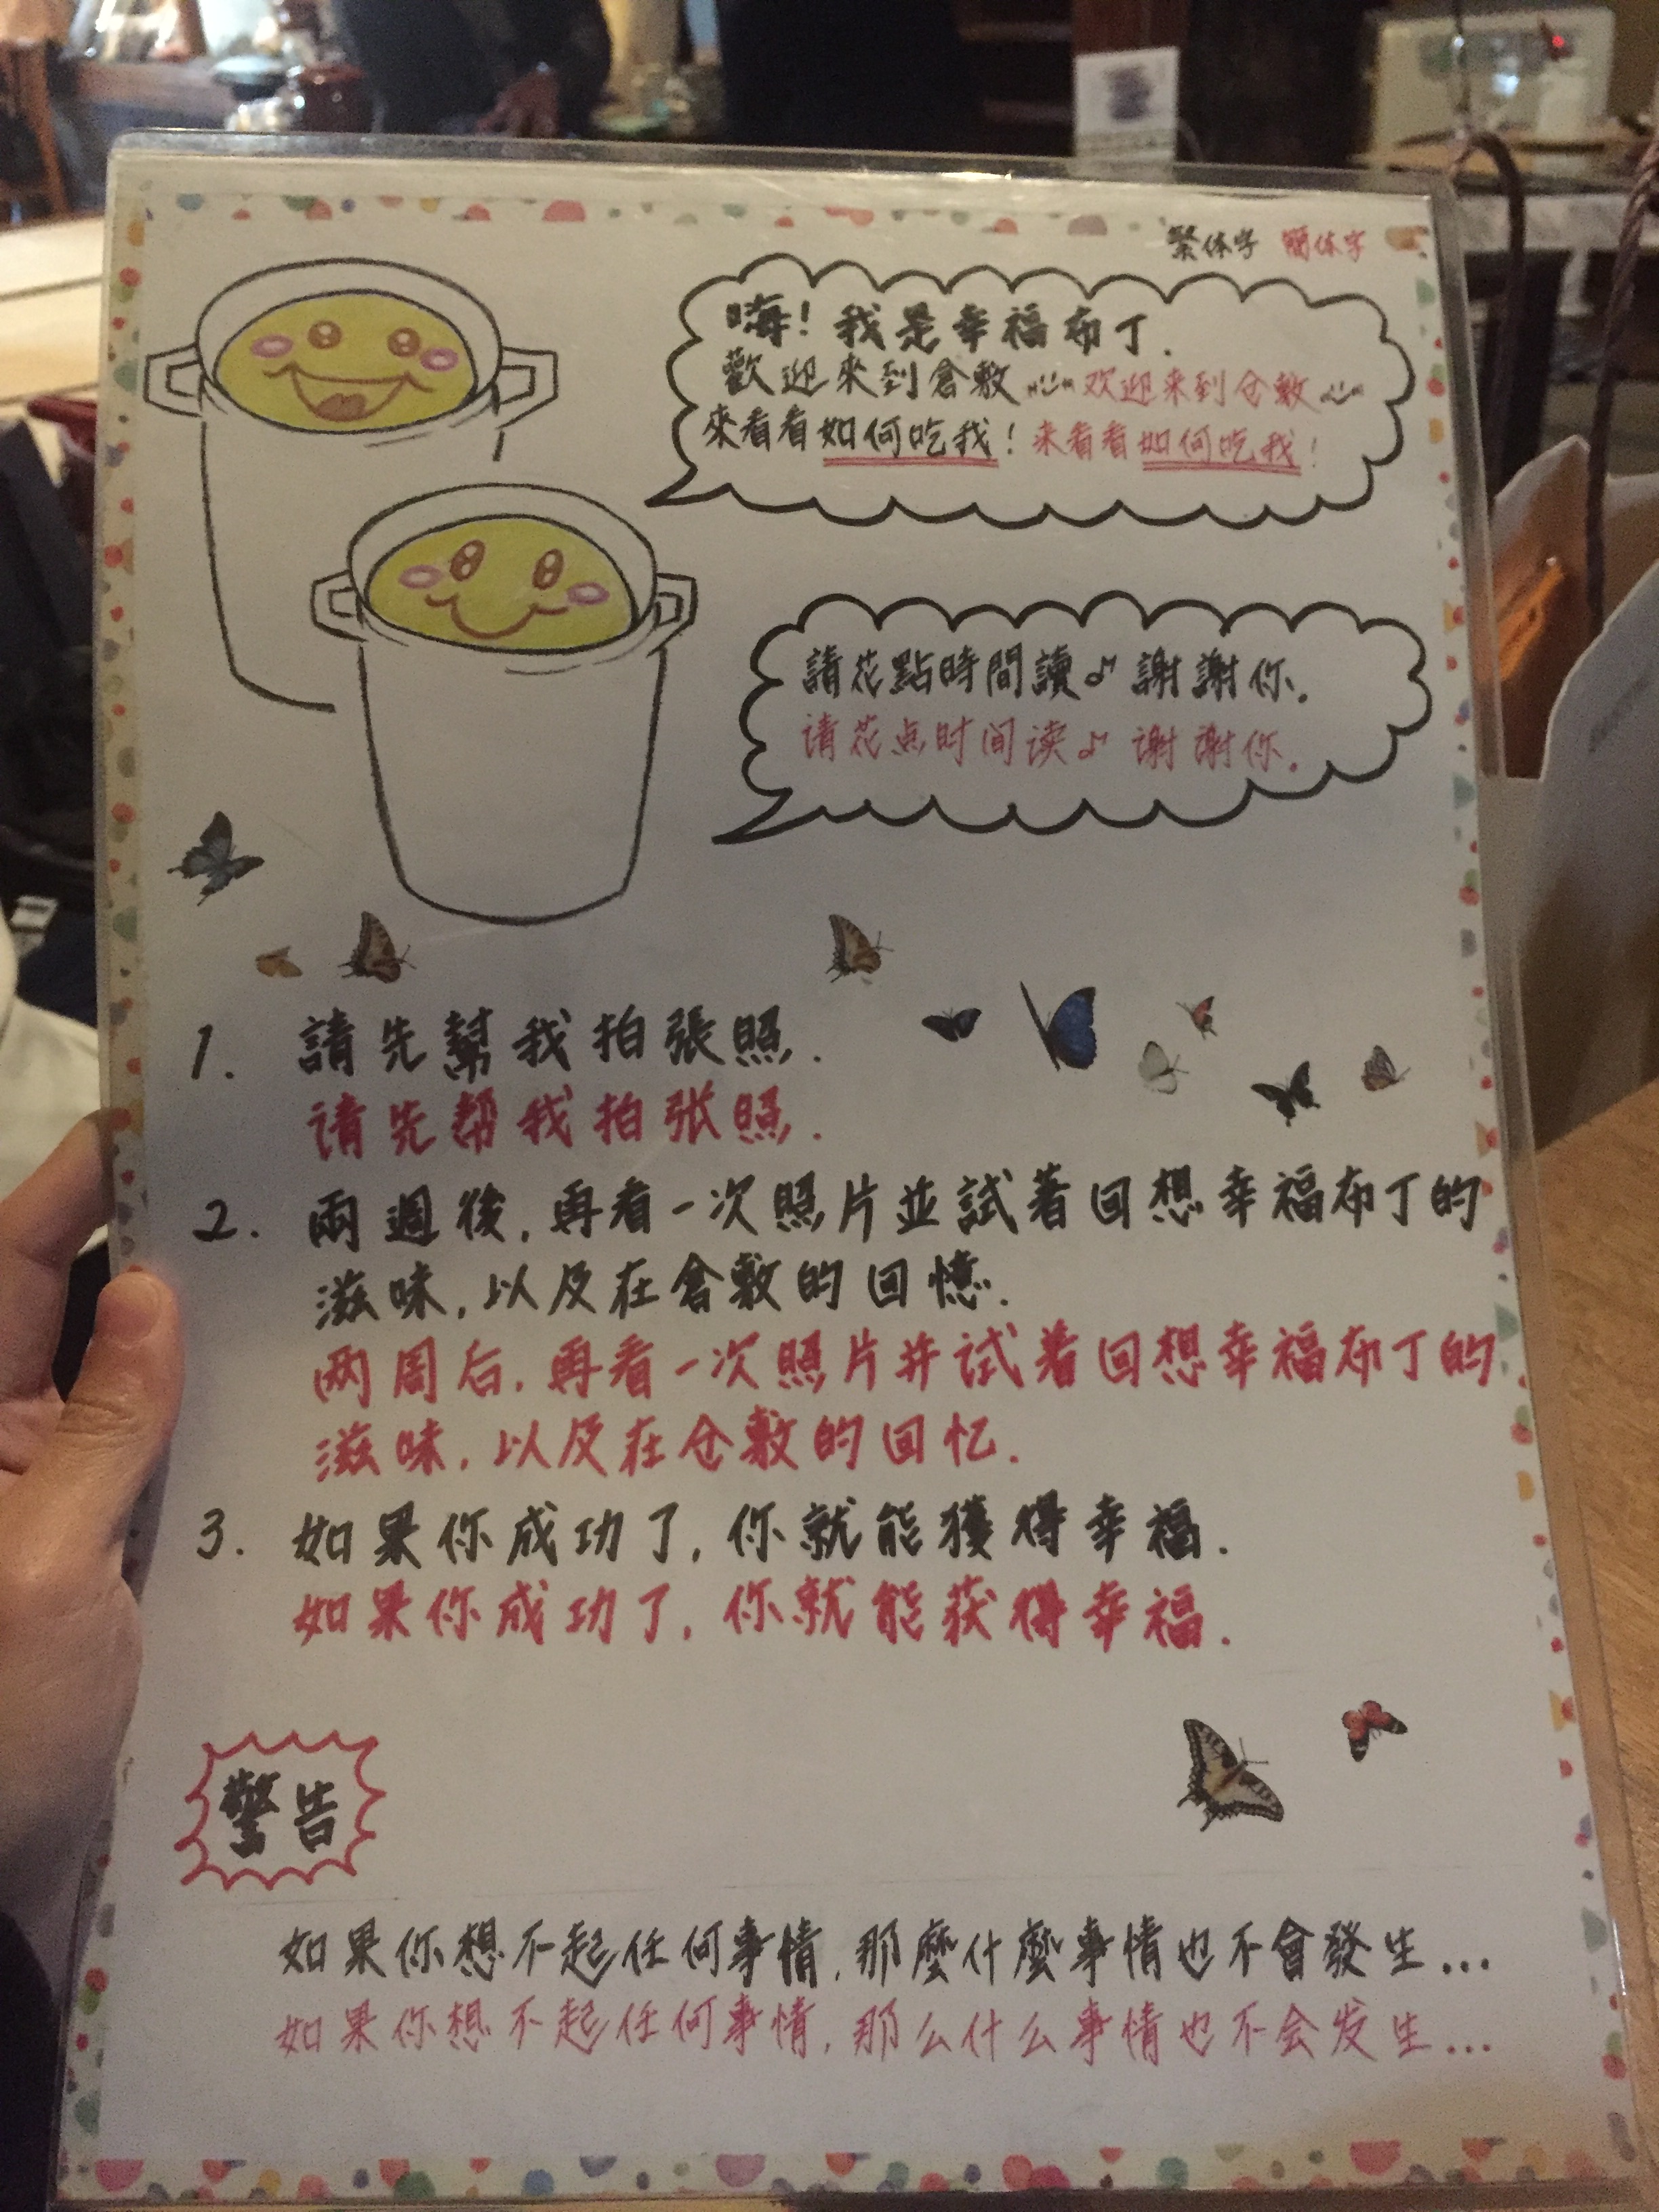 繁体字 簡体字
嗨! 我是幸福布丁.
歡迎來到倉敷 欢迎来到仓敷
來看看如何吃我! 来看看如何吃我!
請花點時間讀♪ 謝謝你.
请花点时间读♪ 谢谢你.
1. 請先幫我拍張照.
请先帮我拍张照.
2. 兩週後,再看一次照片並試著回想幸福布丁的
滋味,以及在倉敷的回憶.
两周后,再看一次照片并试着回想幸福布丁的
滋味,以及在仓敷的回忆.
3. 如果你成功了,你就能獲得幸福.
如果你成功了,你就能获得幸福.
警告
如果你想不起任何事情,那麼什麼事情也不會發生...
如果你想不起任何事情,那么什么事情也不会发生...